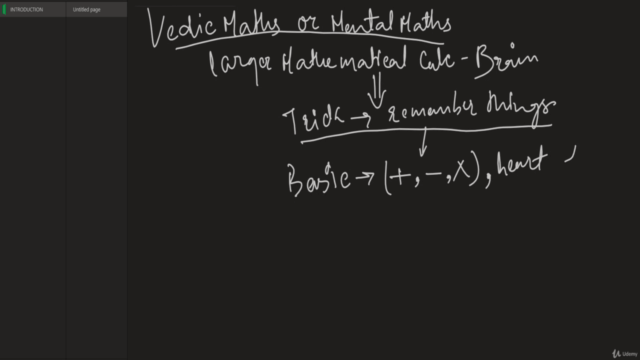 INTRODUCTION
Untitled page
Vedic Maths or Mental Maths
Larger Mathematical Calc - Brain
Trick → remember things
Basic → (+, -, x), heart
Udemy